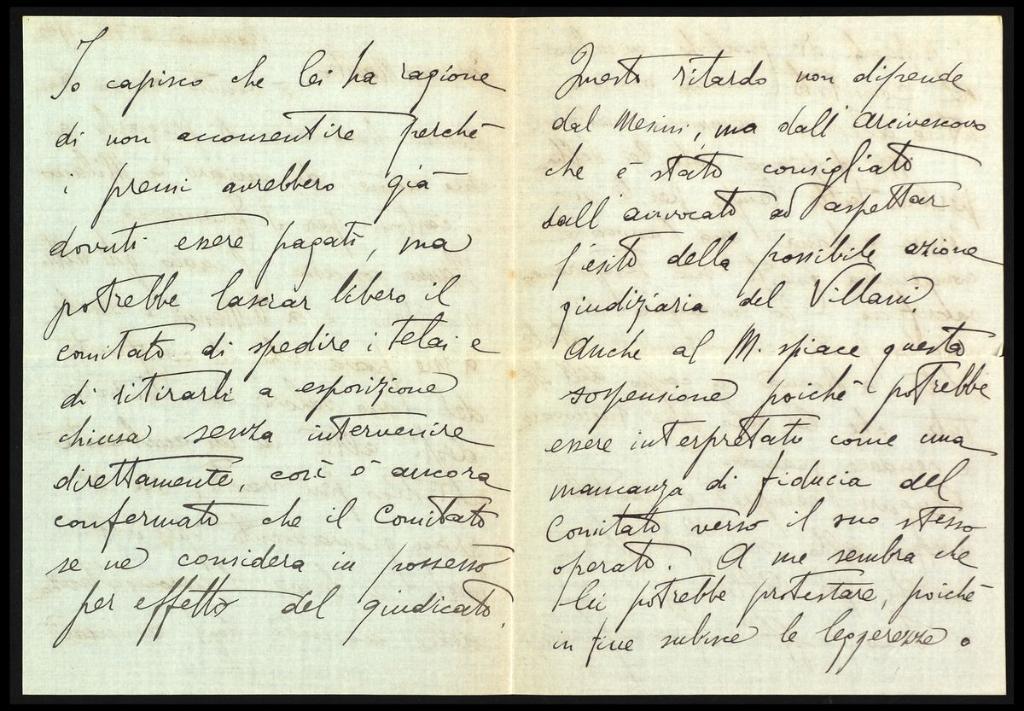 Io capisco che lei ha ragione
di non acconsentire perchè
i premi avrebbero già
dovuti essere pagati, ma
potrebbe lasciar libero il
comitato di spedire i telai e
di ritirarli a esposizione
chiusa senza intervenire
direttamente, così è ancora
confermato che il Comitato
se ne considera in possesso
per effetto del giudicato.
Questo ritardo non dipende
dal Mesini, ma dall'Arcivescovo
che è stato consigliato
dall'avvocato ad aspettar
l'esito della possibile azione
giudiziaria del Villani.
Anche al M. spiace questa
sospensione poichè potrebbe
essere interpretata come una
mancanza di fiducia del
Comitato verso il suo stesso
operato. A me sembra che
lei potrebbe protestare, poichè
in fine subisce le leggerezze.